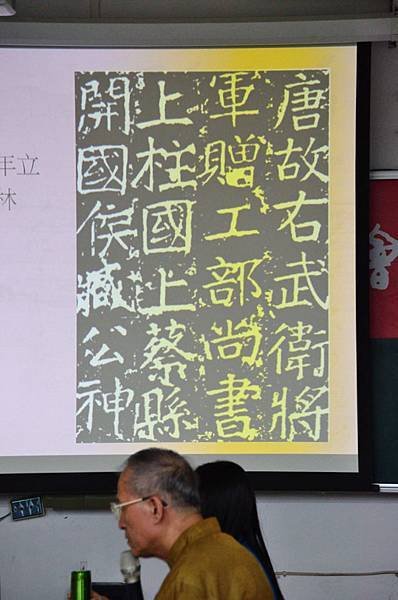 唐故右武衛將
軍贈工部尚書
上柱國上蔡縣
開國侯臧公神
年立
林
會